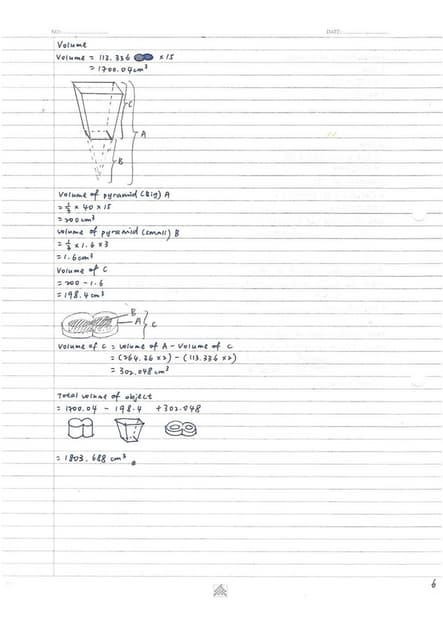 NO:
DATE:
Volume
Volume = 113.336 × 15
= 1700.04 cm³
C
A
B
Volume of pyramid (Big) A
= 1/3 × 40 × 15
= 200 cm³
Volume of pyramid (small) B
= 1/3 × 1.6 × 3
= 1.6 cm³
Volume of C
= 200 - 1.6
= 198.4 cm³
B
A
C
Volume of C = Volume of A - Volume of C
= (264.36 × 2) - (113.336 × 2)
= 302.048 cm³
Total volume of object
= 1700.04 - 198.4 + 302.048
= 1803.688 cm³
6